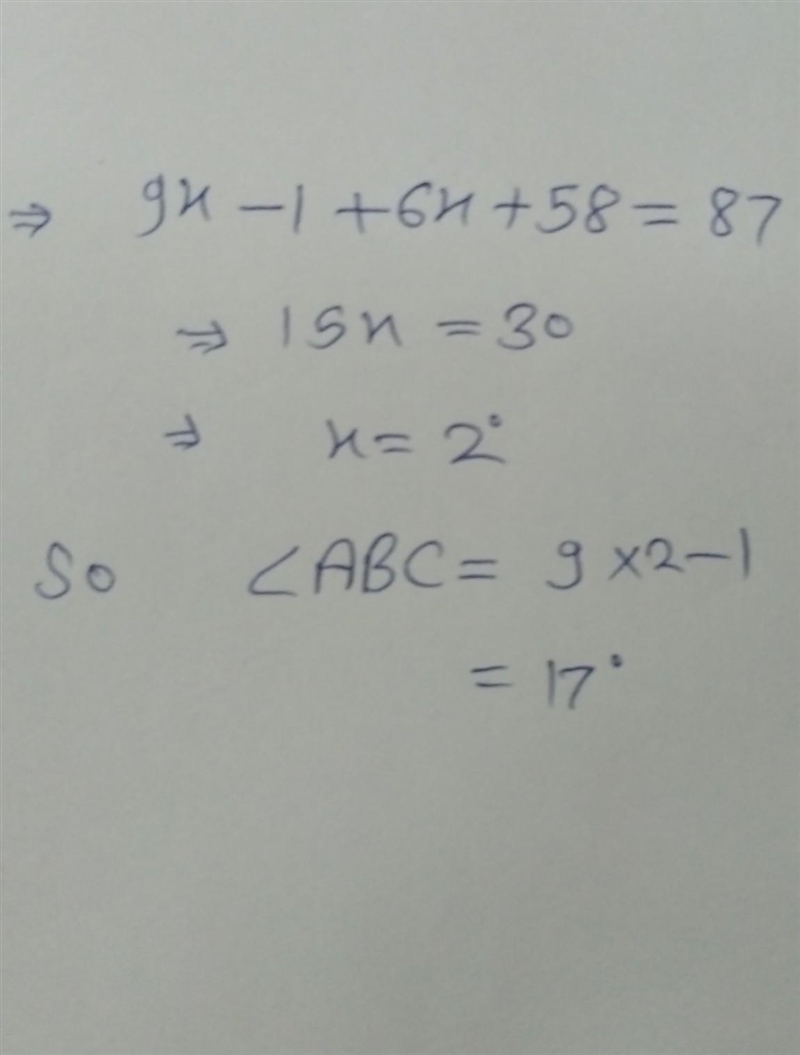 ⇒ 9x - 1 + 6x + 58 = 87
⇒ 15x = 30
⇒ x = 2°
So ∠ABC = 9 × 2 - 1
= 17°